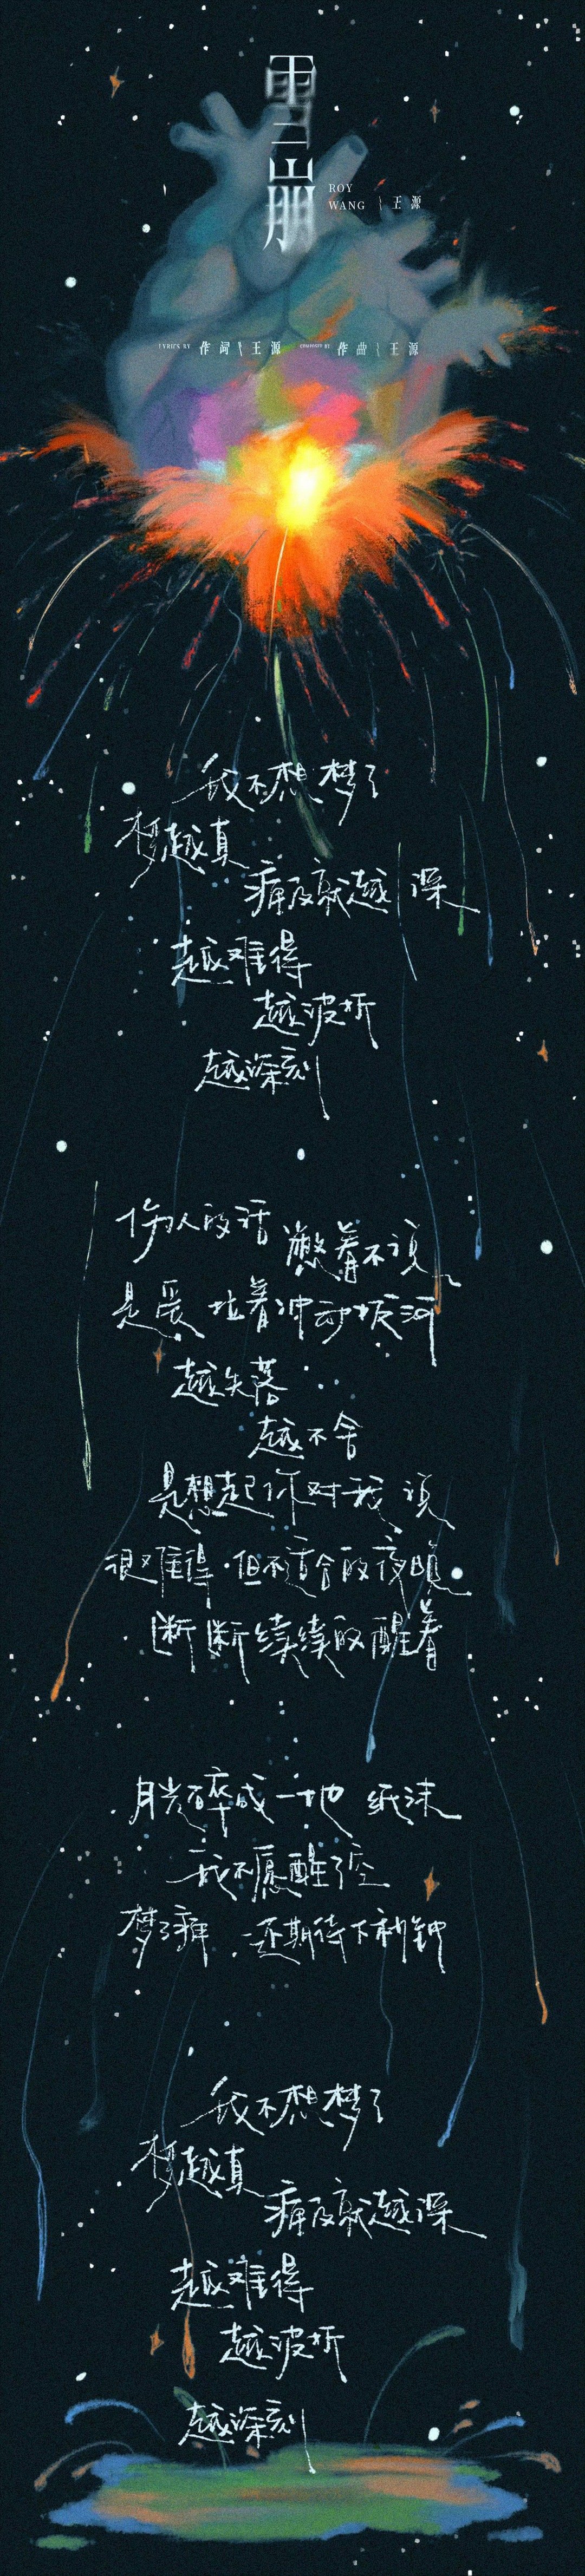 雪崩
ROY
WANG \ 王源
LYRICS BY 作词 \ 王源 COMPOSED BY 作曲 \ 王源
我不想梦了
梦越真
痛及就越深
越难得
越波折
越深刻
伤人的话 憋着不说
是爱 拉着冲动拔河
越失落
越不舍
是想起你对我说
很难得·但不适合的夜晚
断断续续的醒着
月光碎成一地 纸沫
我不愿醒了空
梦了痛,还期待下秒钟
我不想梦了
梦越真
痛及就越深
越难得
越波折
越深刻